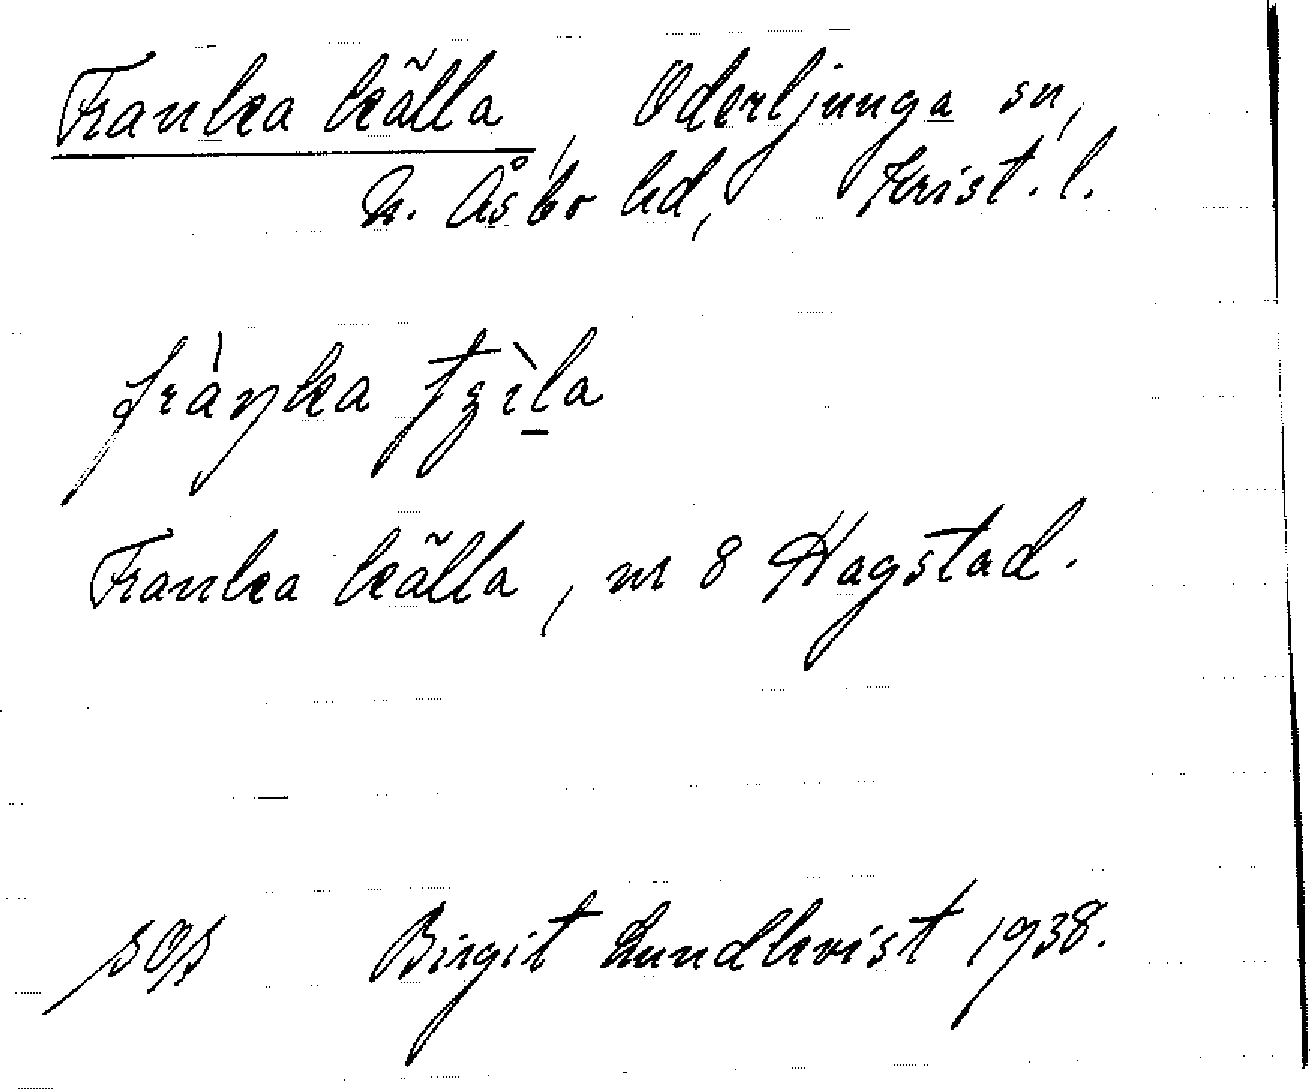 Franka källa, Oderljunga sn,
N. Åsbo hd, Krist. l.
fràŋka tʂɪ̀la
Franka källa, nr 8 Hagstad.
Birgit Lundkvist 1938.